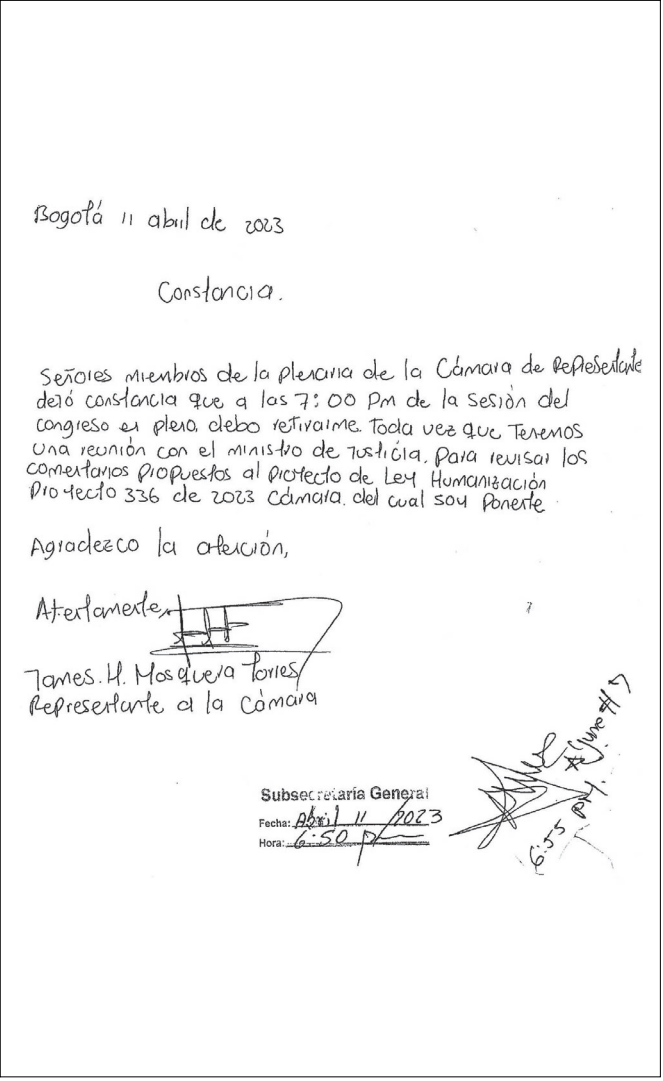 Bogotá 11 abril de 2023
Constancia.
Señores miembros de la plenaria de la Cámara de Representante
dejó constancia que a las 7:00 Pm de la sesión del
congreso en pleno, debo retirarme. Toda vez que Tenemos
una reunión con el ministro de Justicia. Para revisar los
comentarios propuestos al proyecto de Ley Humanización
Proyecto 336 de 2023 Cámara. del cual soy Ponente
Agradezco la atención,
Atentamente,
James. H. Mosquera Torres
Representante a la Cámara
Subsecretaría General
Fecha: Abril 11 / 2023
Hora: 6:50 p
6:55 PM.